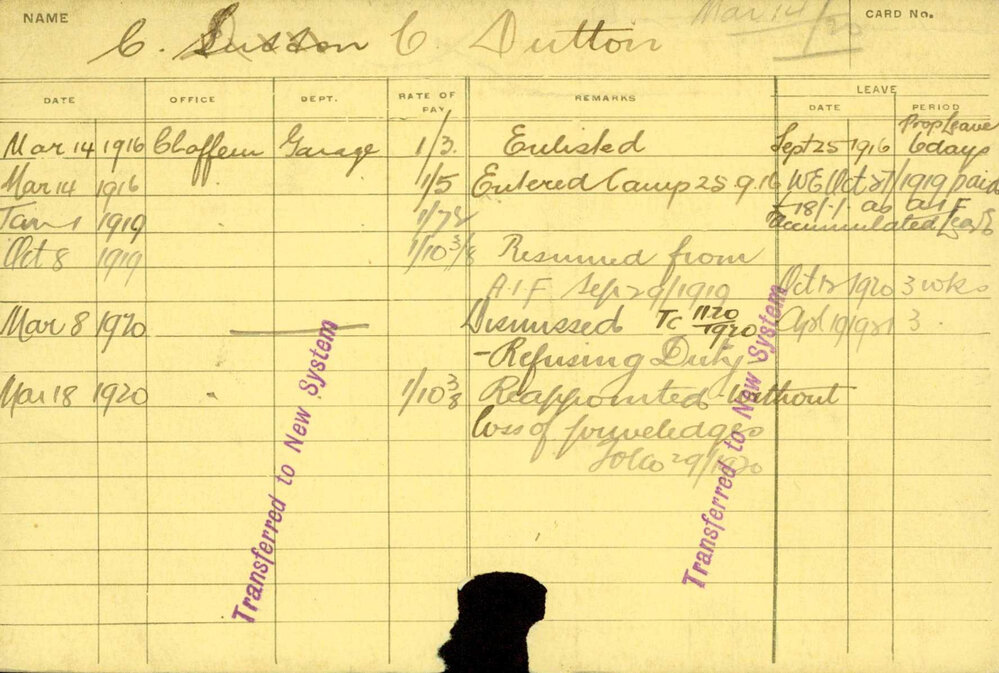 NAME
C. Dutton C. Dutton
Mar 14/20
CARD No.
DATE OFFICE DEPT. RATE OF PAY REMARKS LEAVE
DATE PERIOD
Mar 14 1916 Chaffeur Garage 1/3. Enlisted Sept 25 1916 Prop Leave 6 days
Mar 14 1916 " 1/5 Entered Camp 25.9.16 WE (Oct 25/1919 paid
Jan 1 1919 1/7 18/-/- as A.I.F
accumulated Leave
Oct 8 1919 1/10 3/8 Resumed from
A.I.F Sep 29/1919 Oct 12 1920 3 wks
Mar 8 1920 Dismissed TC 1120/1920 Apl 19 1921 3
-Refusing Duty
Mar 18 1920 " 1/10 3/8 Reappointed without
loss of priveledges
29/1920
Transferred to New System
Transferred to New System